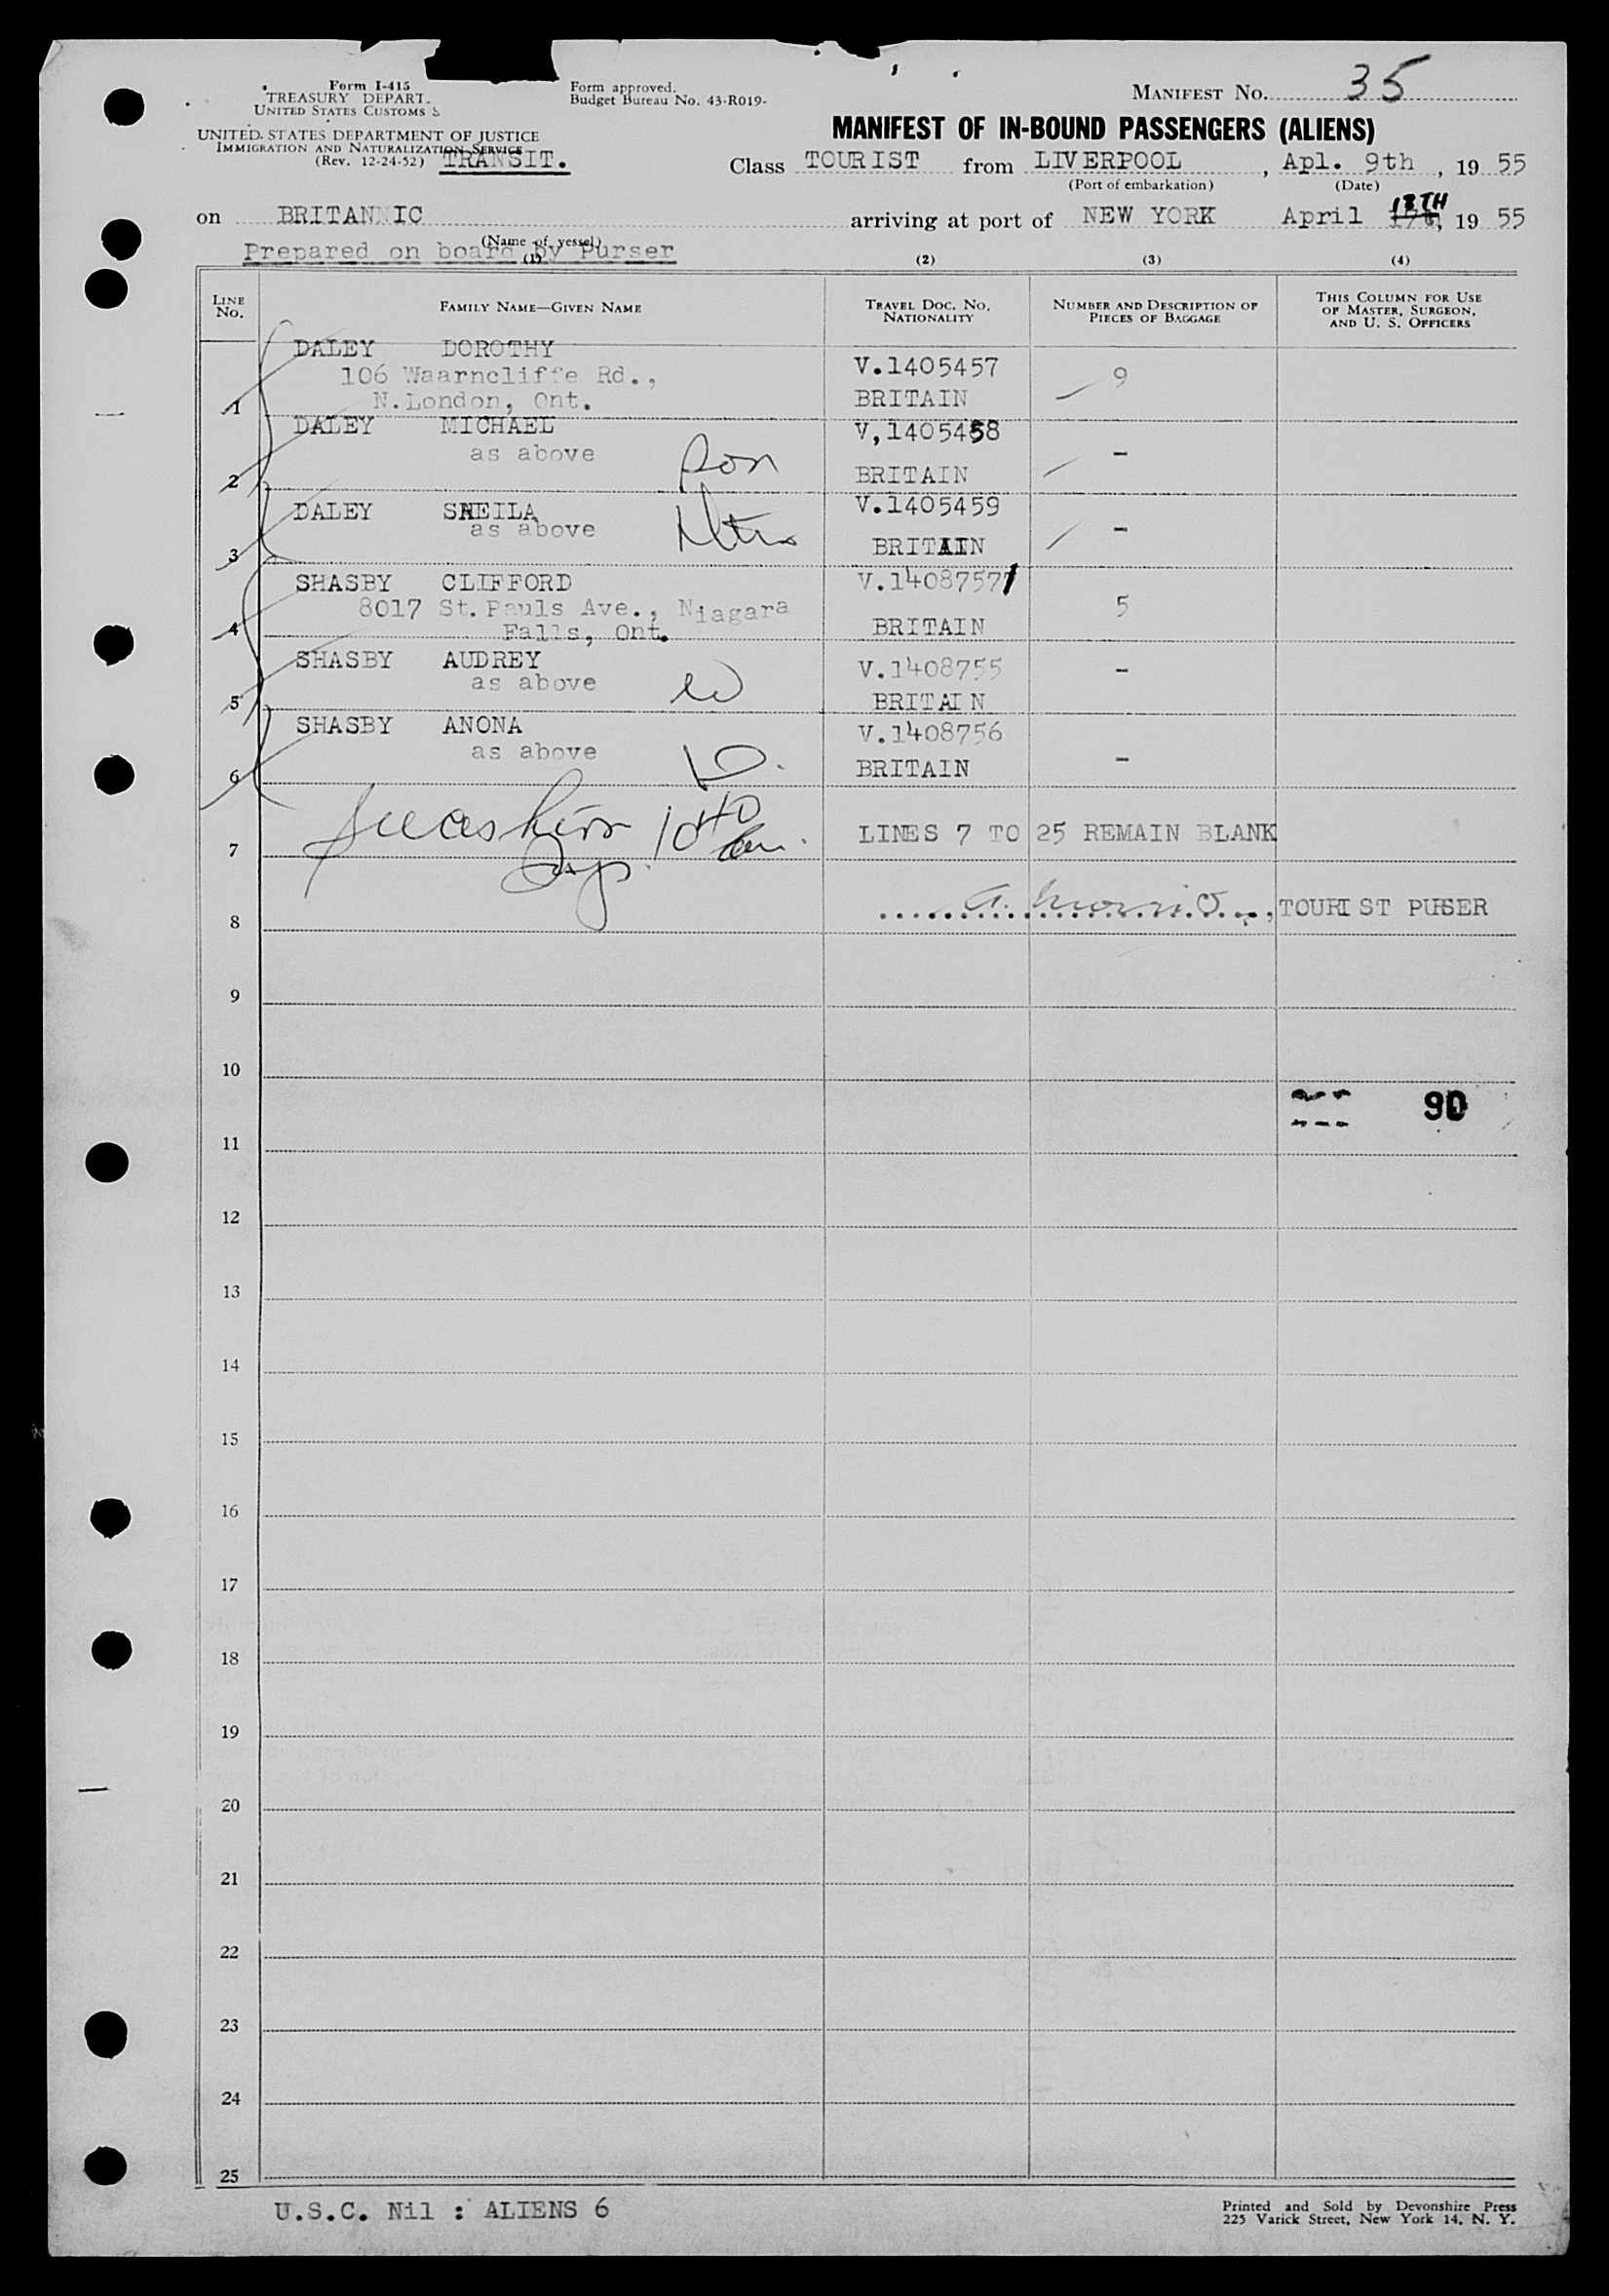 Form I-415
TREASURY DEPART.
UNITED STATES CUSTOMS S
UNITED STATES DEPARTMENT OF JUSTICE
IMMIGRATION AND NATURALIZATION SERVICE
(Rev. 12-24-52) TRANSIT.
Form approved.
Budget Bureau No. 43-R019-
MANIFEST NO. 35
MANIFEST OF IN-BOUND PASSENGERS (ALIENS)
Class TOURIST from LIVERPOOL, Apl. 9th, 19 55
(Port of embarkation) (Date)
on BRITANNIC arriving at port of NEW YORK April 18TH, 19 55
(Name of vessel)
Prepared on board by Purser
(1) (2) (3) (4)
LINE NO. FAMILY NAME—GIVEN NAME TRAVEL DOC. NO. NATIONALITY NUMBER AND DESCRIPTION OF PIECES OF BAGGAGE THIS COLUMN FOR USE OF MASTER, SURGEON, AND U. S. OFFICERS
DALEY DOROTHY V.1405457 9
106 Waarncliffe Rd.,
1 N.London, Ont. BRITAIN
DALEY MICHAEL V,1405458 -
as above son
2 BRITAIN
DALEY SHEILA V.1405459 -
as above
3 BRITAIN
SHASBY CLIFFORD V.1408757
8017 St. Pauls Ave., Niagara 5
4 Falls, Ont. BRITAIN
SHASBY AUDREY V.1408755 -
as above W
5 BRITAIN
SHASBY ANONA V.1408756
as above D.
6 BRITAIN -
7 LINES 7 TO 25 REMAIN BLANK
8 TOURIST PURSER
9
10
90
11
12
13
14
15
16
17
18
19
20
21
22
23
24
25
U.S.C. Nil : ALIENS 6
Printed and Sold by Devonshire Press
225 Varick Street, New York 14, N. Y.